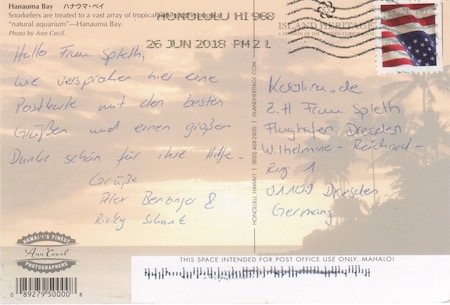 Hanauma Bay ハナウマ・ベイ
Snorkelers are treated to a vast array of tropical
"natural aquarium"—Hanauma Bay.
Photo by Ann Cecil.
HONOLULU HI 968
26 JUN 2018 PM 2 L
ISLAND HERITAGE
Hello Frau Spleth,
wie versprochen hier eine
Postkarte mit den besten
Grüßen und einen großen
Danke schön für ihre Hilfe.
Grüße
&
Ricky
z.H Frau Spleth
Flughafen Dresden
Wilhelmine-Reichard-
Ring 1
01109 Dresden
Germany
HONOLULU, HAWAII
ISLANDHERITAGE.COM
HAWAII'S FINEST
Ann Cecil
PHOTOGRAPHERS
THIS SPACE INTENDED FOR POST OFFICE USE ONLY. MAHALO!
0 89279 50000 8